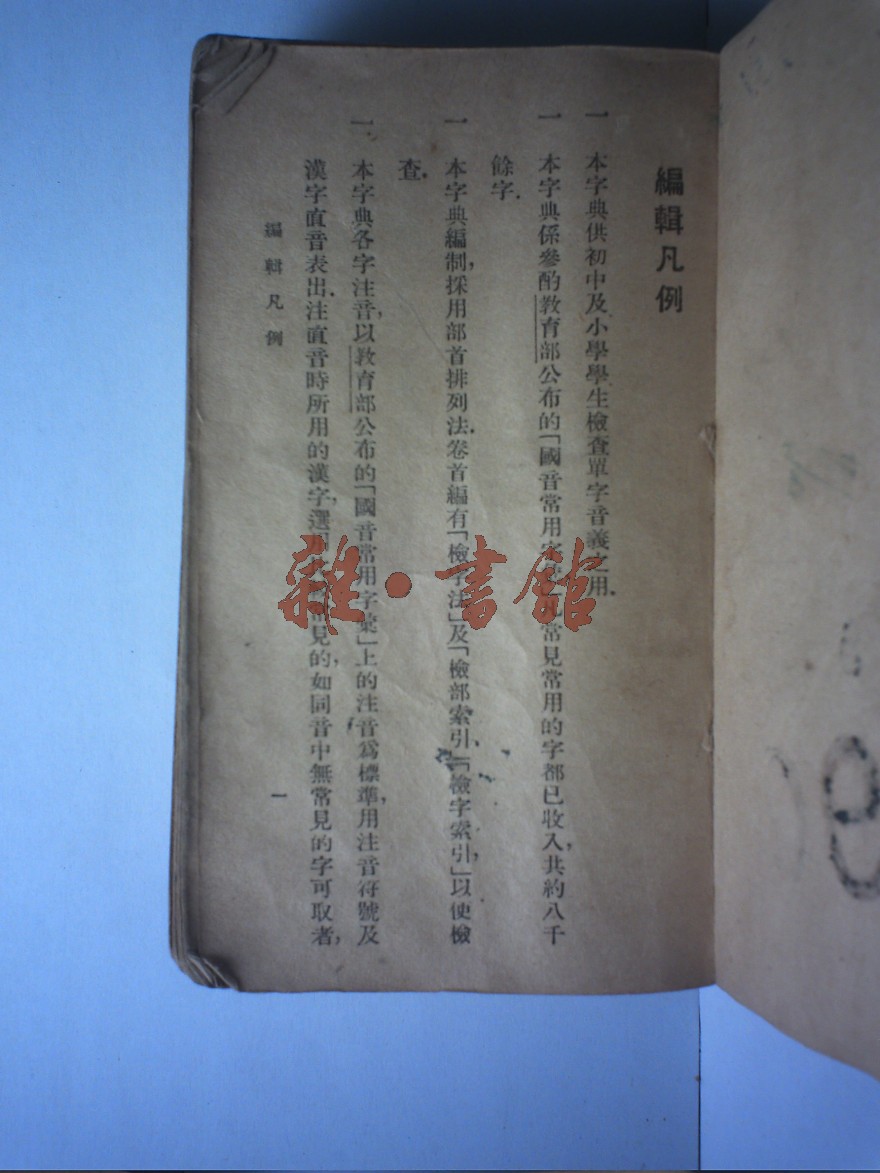 編輯凡例
一 本字典供初中及小學學生檢查單字音義之用.
一 本字典係參酌教育部公布的「國音常用字彙」凡常見常用的字都已收入,共約八千
餘字.
一 本字典編制,採用部首排列法.卷首編有「檢字法」及「檢部索引」、「檢字索引」,以便檢
查.
一 本字典各字注音,以教育部公布的「國音常用字彙」上的注音爲標準,用注音符號及
漢字直音表出.注直音時所用的漢字,選用 常見的,如同音中無常見的字可取者,
編輯凡例
一
雜·書館